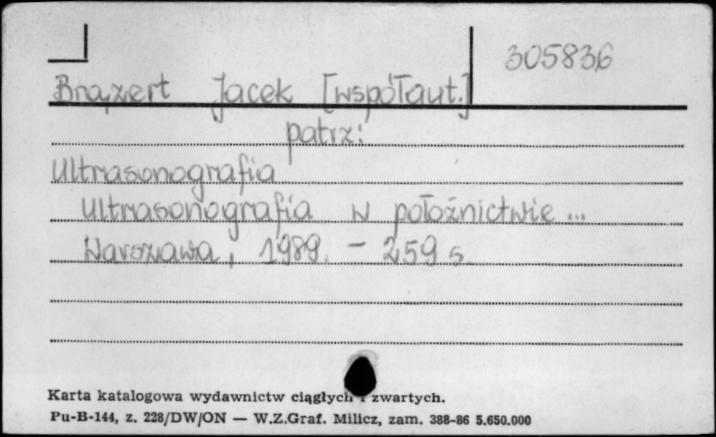 305836
Brązert Jacek [współaut.]
patrz:
Ultrasonografia
Ultrasonografia w położnictwie...
Warszawa, 1989. - 259 s.
Karta katalogowa wydawnictw ciągłych i zwartych.
Pu-B-144, z. 228/DW/ON — W.Z.Graf. Milicz, zam. 388-86 5.650.000